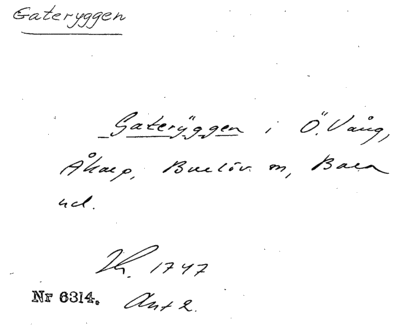 Gateryggen
Gaterÿggen i Ö. Vång,
Åkarp, Burlöv sn, Bara
hd.
Kr. 1747
Nr 6314. Akt 2.